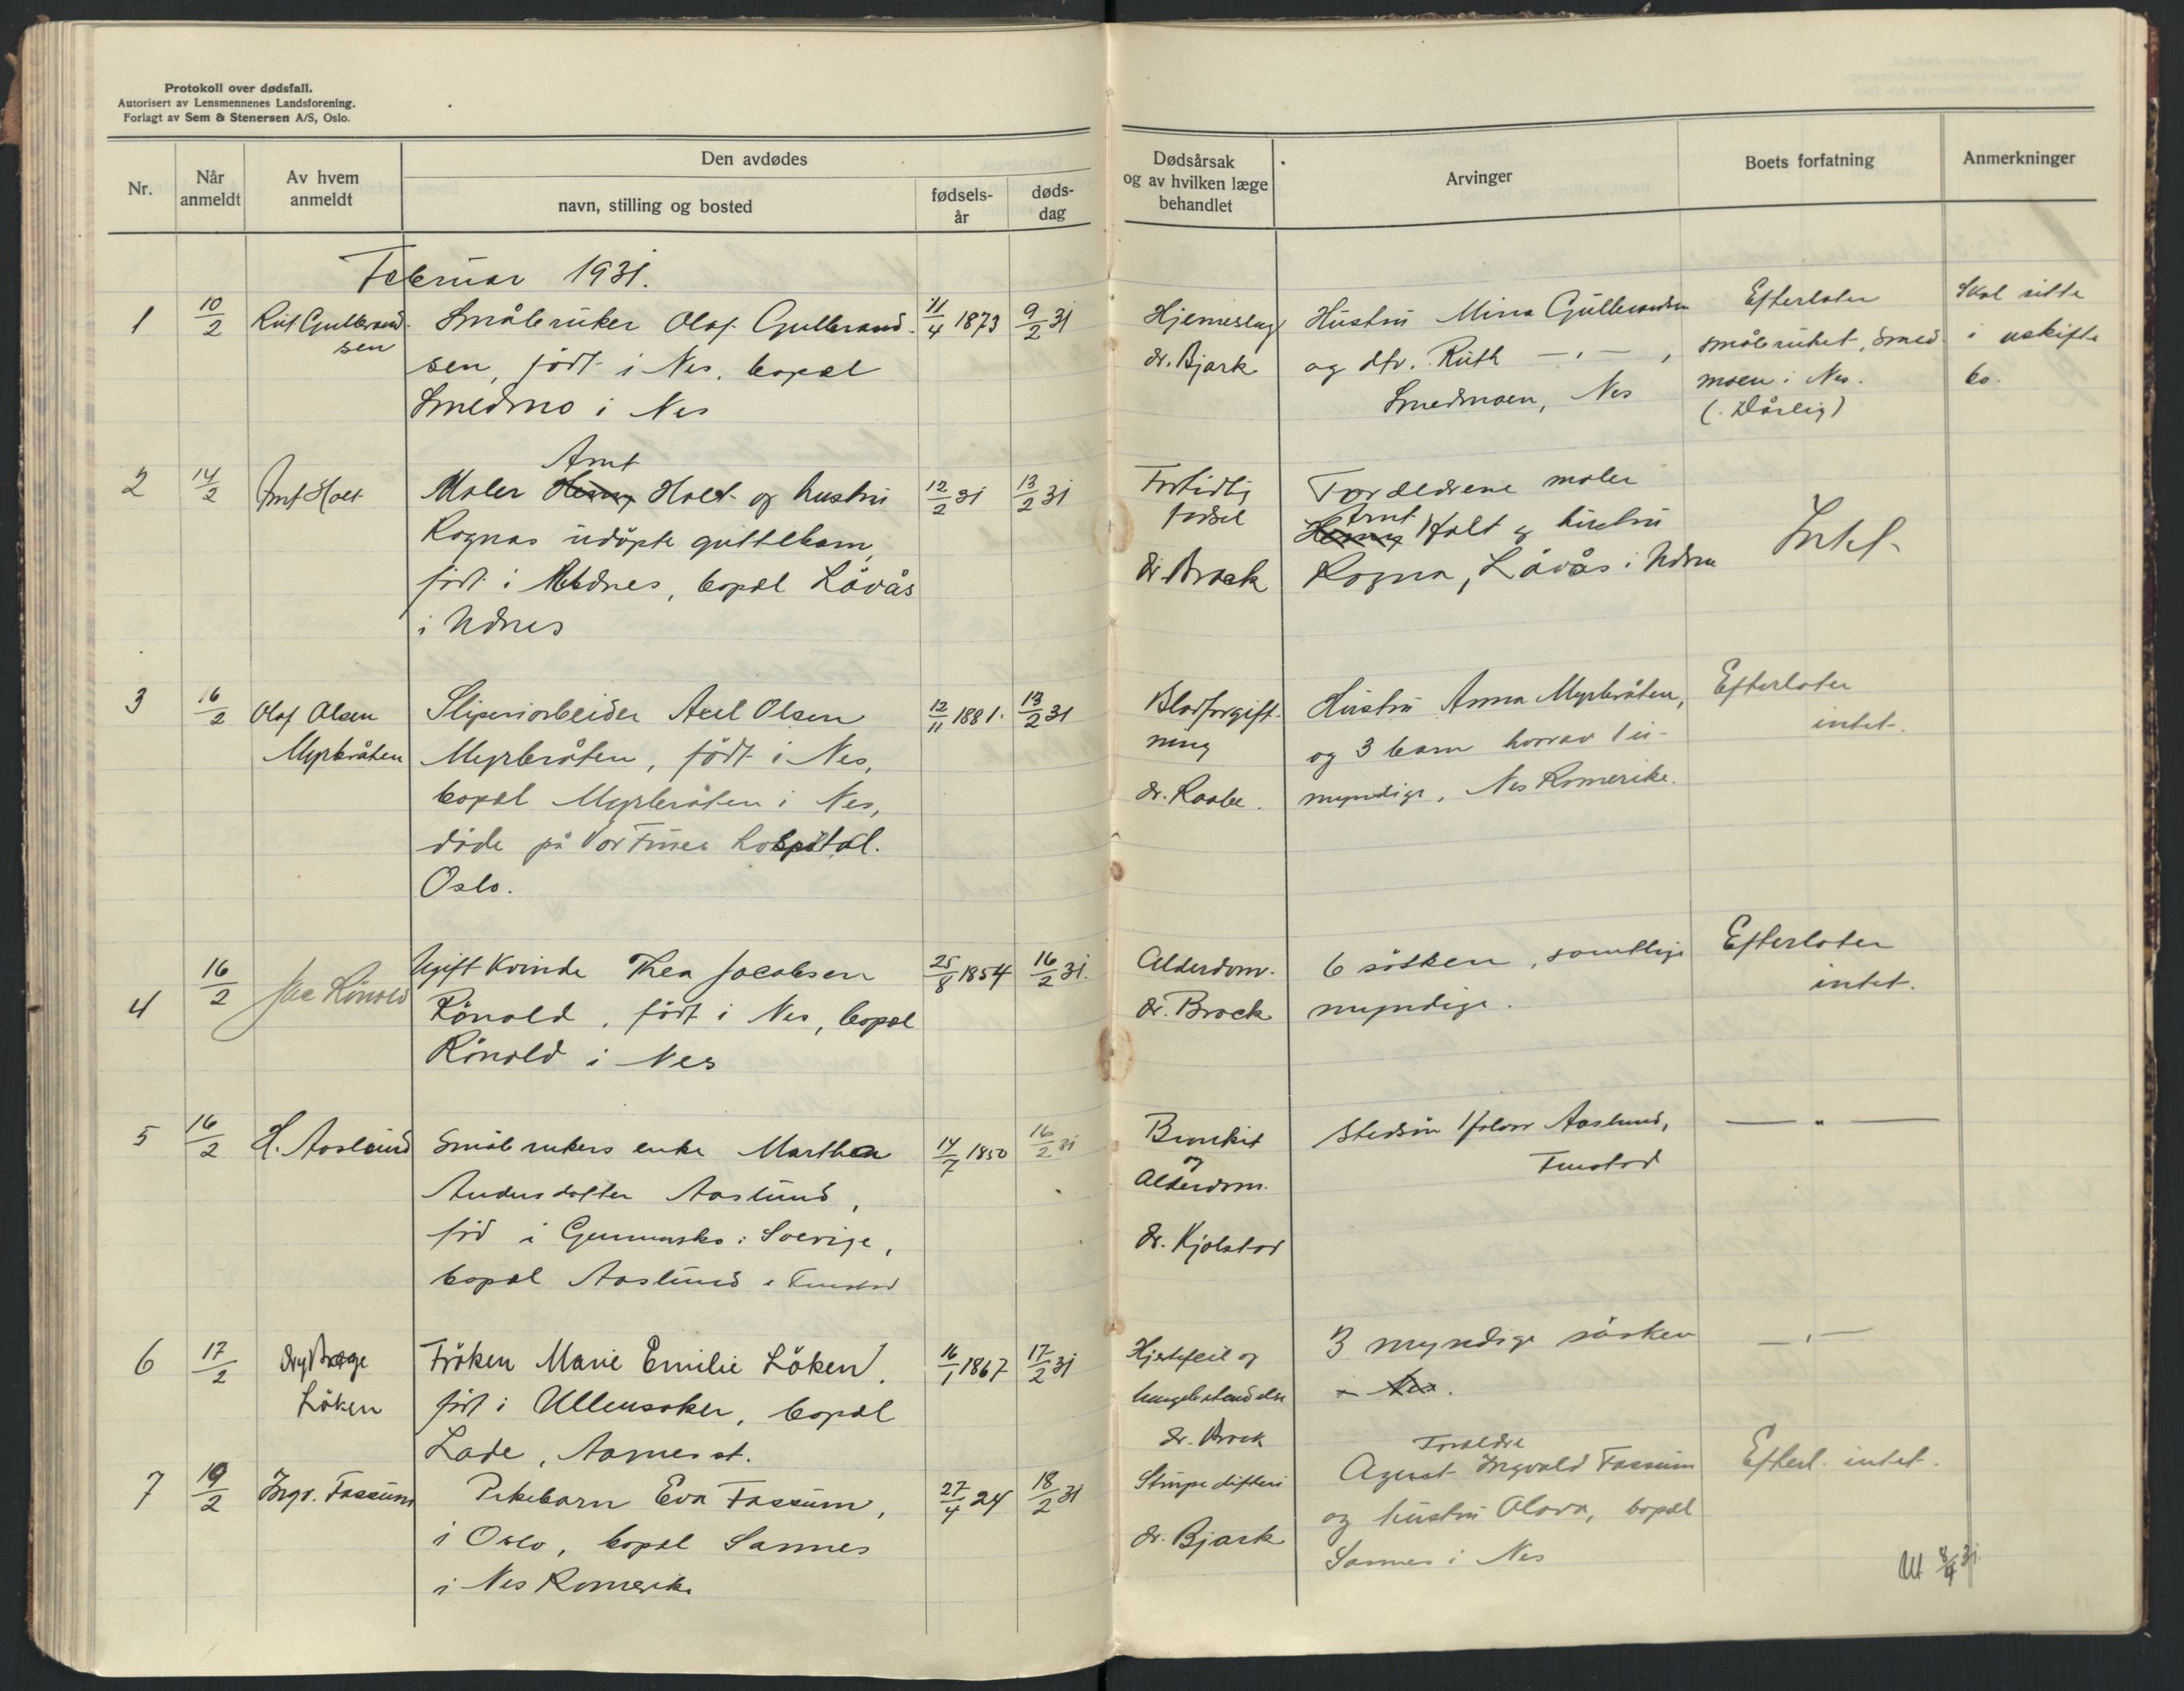 Protokoll over dødsfall.
Autorisert av Lensmennenes Landsforening.
Forlagt av Sem & Stenersen A/S, Oslo.
Nr.
Når anmeldt
Av hvem anmeldt
Den avdødes
navn, stilling og bosted
fødsels-år
døds-dag
Dødsårsak og av hvilken læge behandlet
Arvinger
Boets forfatning
Anmerkninger
Februar 1931.
1
10/2
Rut Gulbrand-
sen
Småbruker Olaf Gulbrand-
sen, født i Nes, bopæl
Smedmo i Nes
11/4 1873
9/2 31
Hjerneslag
dr. Bjark
Hustru Mina Gulbrandsen
og dtr. Ruth —„—,
Smedmoen, Nes
Efterlater
småbruket, Smed-
moen i Nes.
(Dårlig)
Skal sitte
i uskifte
bo.
2
14/2
Arnt Holt
Arnt
Maler Henry Holt og hustru
Ragnas udöpte guttebarn,
født i Udnes, bopæl Lövås
i Udnes
12/2 31
13/2 31
Fortidlig
födsel
dr. Brock
Foreldrene maler
Arnt
Henry Holt og hustru
Ragna, Lövås i Udnes
Intet
3
16/2
Olaf Olsen
Myrbråten
Sliperiarbeider Axel Olsen
Myrbråten, født i Nes,
bopæl Myrbråten i Nes,
döde på Vor Frues hospital.
Oslo.
12/11 1881.
13/2 31
Blodforgift-
ning
dr. Raabe.
Hustru Anna Myrbråten,
og 3 barn hvorav 1 u-
myndige, Nes Romerike.
Efterlater
intet.
4
16/2
Jac Rönold
Ugift kvinde Thea Jacobsen
Rönold, født i Nes, bopæl
Rönold i Nes
25/8 1854
16/2 31.
Alderdom.
dr. Brock
6 søsken, samtlige
myndige.
Efterlater
intet.
5
16/2
H. Aaslund
Småbrukers enke Marthea
Andersdatter Aaslund,
född i Gunnarsko i Sverige,
bopæl Aaslund i Funstad
14/7 1850
16/2 31
Bronkit
og
Alderdom.
dr. Kjølstad
Stedsön Halvor Aaslund,
— „ —
6
17/2
Löken
Fröken Marie Emilie Löken,
født i Ullensaker, bopæl
Lade, Aarnes st.
16/1 1867
17/2 31
Hjertefeil og
lungebetendelse
dr. Brock
3 myndige søsken
i Nes.
— „ —
7
19/2
Ingv. Fossum
Pikebarn Eva Fossum,
i Oslo, bopæl Sannes
i Nes Romerike
27/4 24
18/2 31
Strupe difteri
dr. Bjark
Foreldre
Agent Ingvald Fossum
og hustru Olava, bopæl
Sannes i Nes
Efterl. intet.
8/4 31